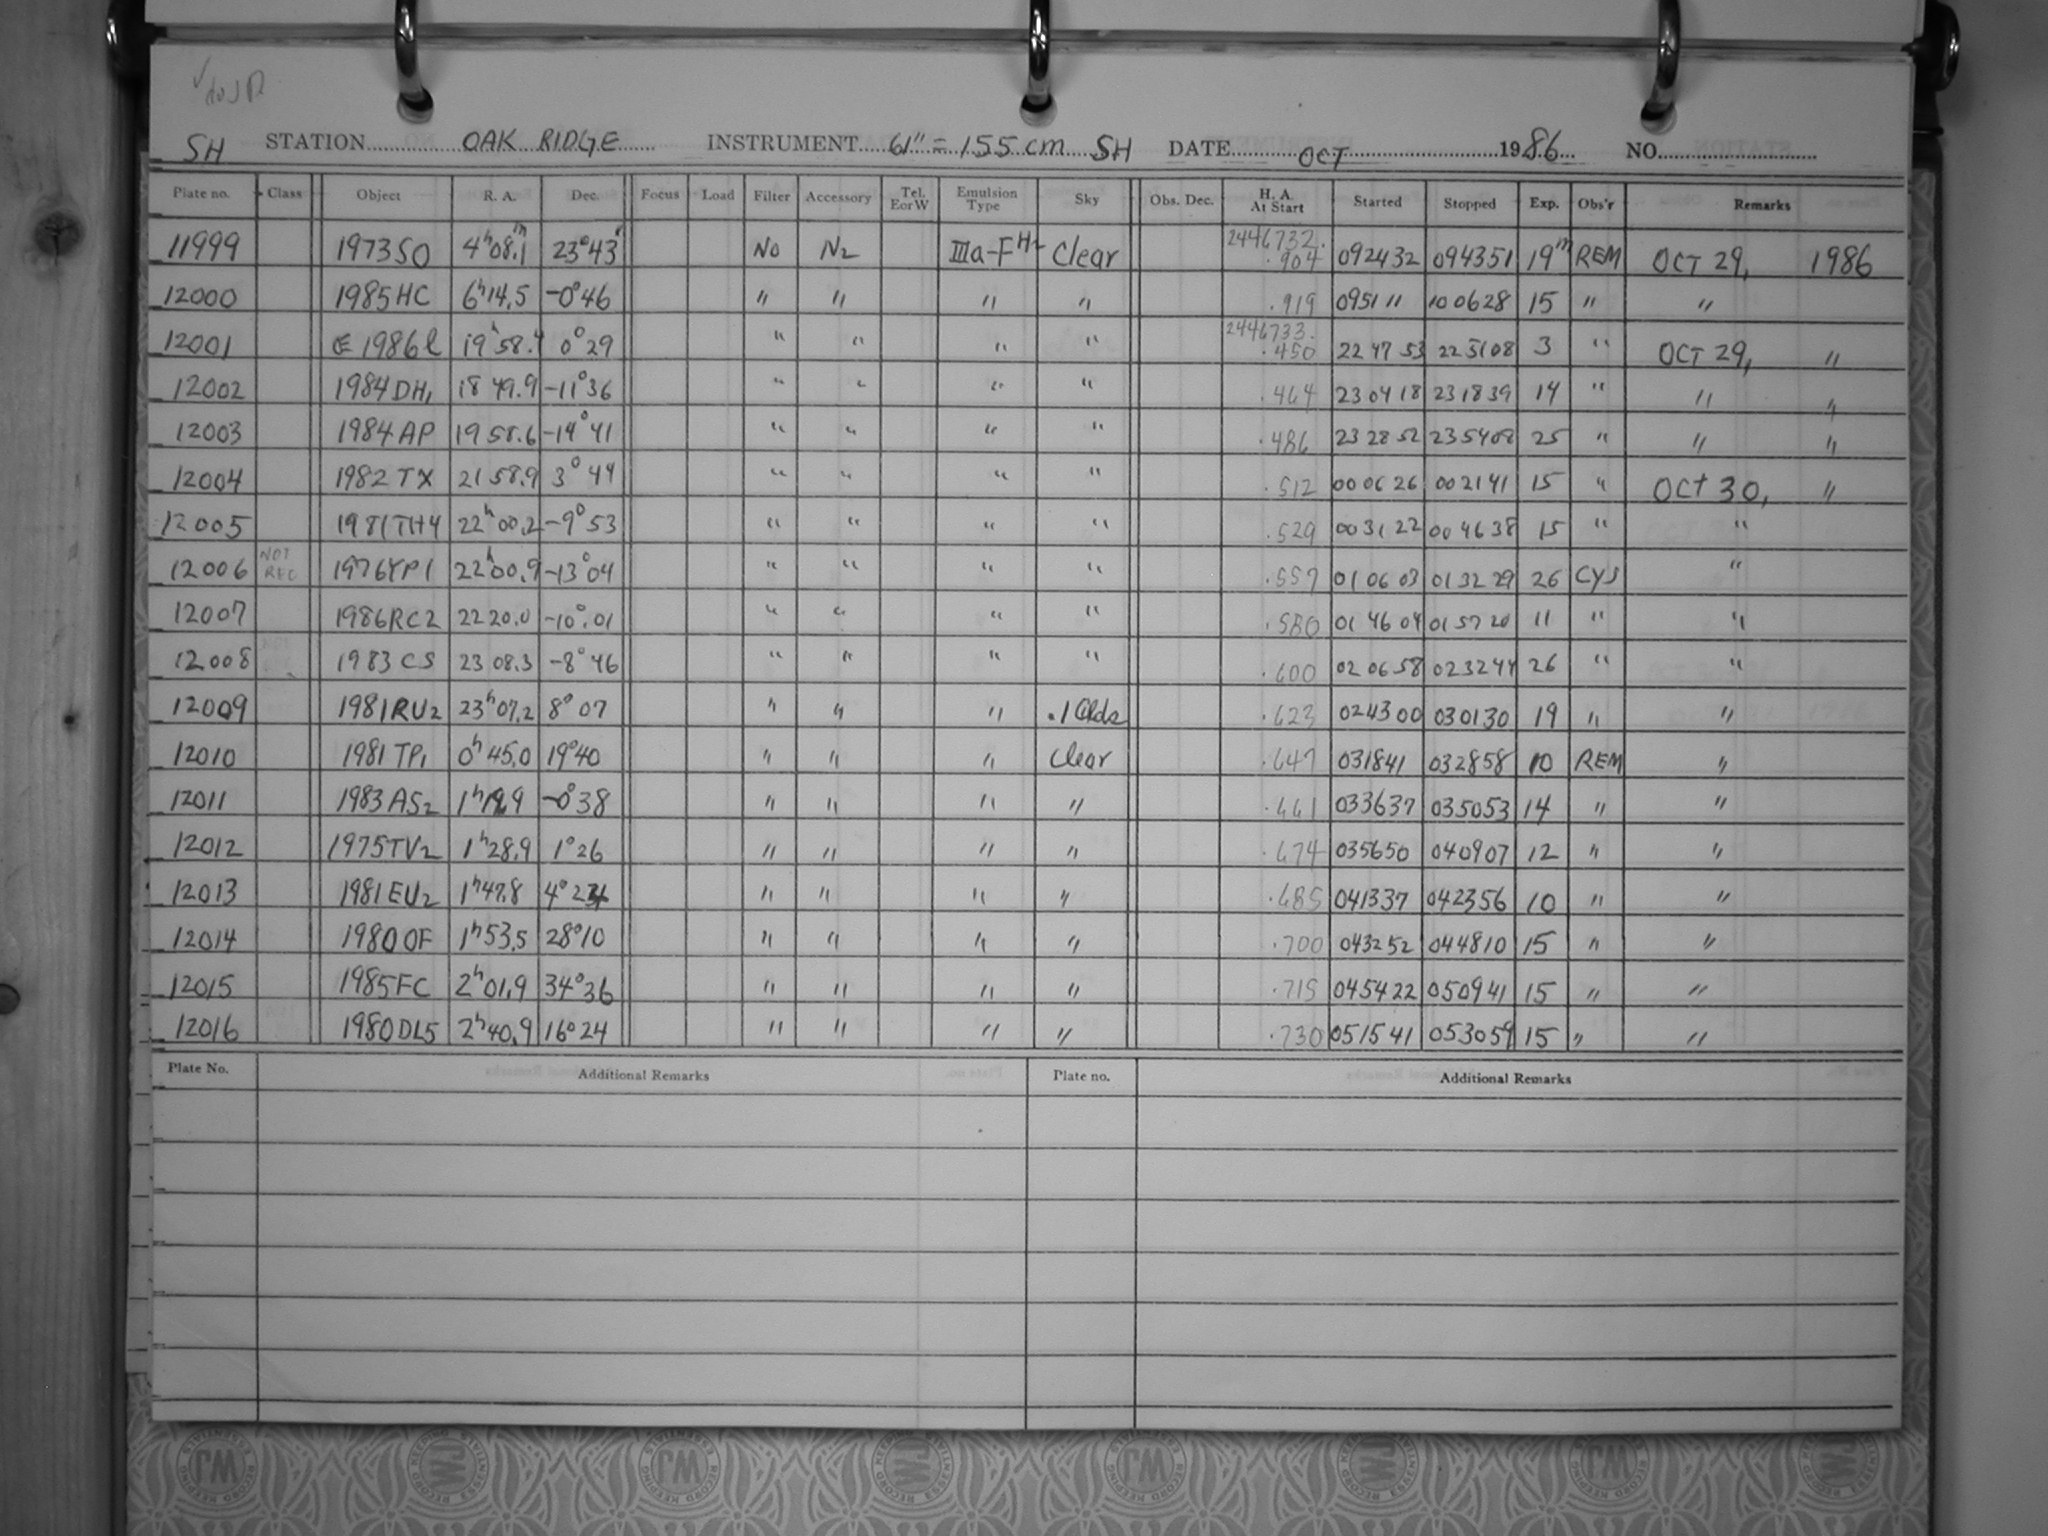 SH STATION OAK RIDGE INSTRUMENT 61" = 155 cm SH DATE OCT 1986 NO.
Plate no. Class Object R. A. Dec. Focus Load Filter Accessory Tel. E or W Emulsion Type Sky Obs. Dec. H. A. At Start Started Stopped Exp. Obs'r Remarks
11999 1973SO 4h08.1m 23°43' No N2 IIIa-F H2 Clear 2446732. .904 092432 094351 19m REM OCT 29, 1986
12000 1985HC 6h14.5 -0°46 " " " " .919 095111 100628 15 " "
12001 1986l 19h58.4 0°29 " " " " 2446733. .450 224753 225108 3 " OCT 29, "
12002 1984DH1 18 49.9 -11°36 " " " " .464 230418 231839 14 " " "
12003 1984AP 19 58.6 -14°41 " " " " .486 232852 235408 25 " " "
12004 1982TX 21 58.9 3°44 " " " " .512 000626 002141 15 " OCT 30, "
12005 1981TH4 22h00.2 -9°53 " " " " .529 003122 004638 15 " "
12006 NOT REC 1976YP1 22h00.9 -13°04 " " " " .557 010603 013229 26 CYS "
12007 1986RC2 22 20.0 -10°.01 " " " " .580 014604 015720 11 " "
12008 1983CS 23 08.3 -8°46 " " " " .600 020658 023244 26 " "
12009 1981RU2 23h07.2 8°07 " " " .1 Clds .623 024300 030130 19 " "
12010 1981TP1 0h45.0 19°40 " " " Clear .647 031841 032858 10 REM "
12011 1983AS2 1h12.9 -0°38 " " " " .661 033637 035053 14 " "
12012 1975TV2 1h28.9 1°26 " " " " .674 035650 040907 12 " "
12013 1981EU2 1h47.8 4°24 " " " " .685 041337 042356 10 " "
12014 1980OF 1h53.5 28°10 " " " " .700 043252 044810 15 " "
12015 1985FC 2h01.9 34°36 " " " " .715 045422 050941 15 " "
12016 1980DL5 2h40.9 16°24 " " " " .730 051541 053059 15 " "
Plate No. Additional Remarks Plate no. Additional Remarks